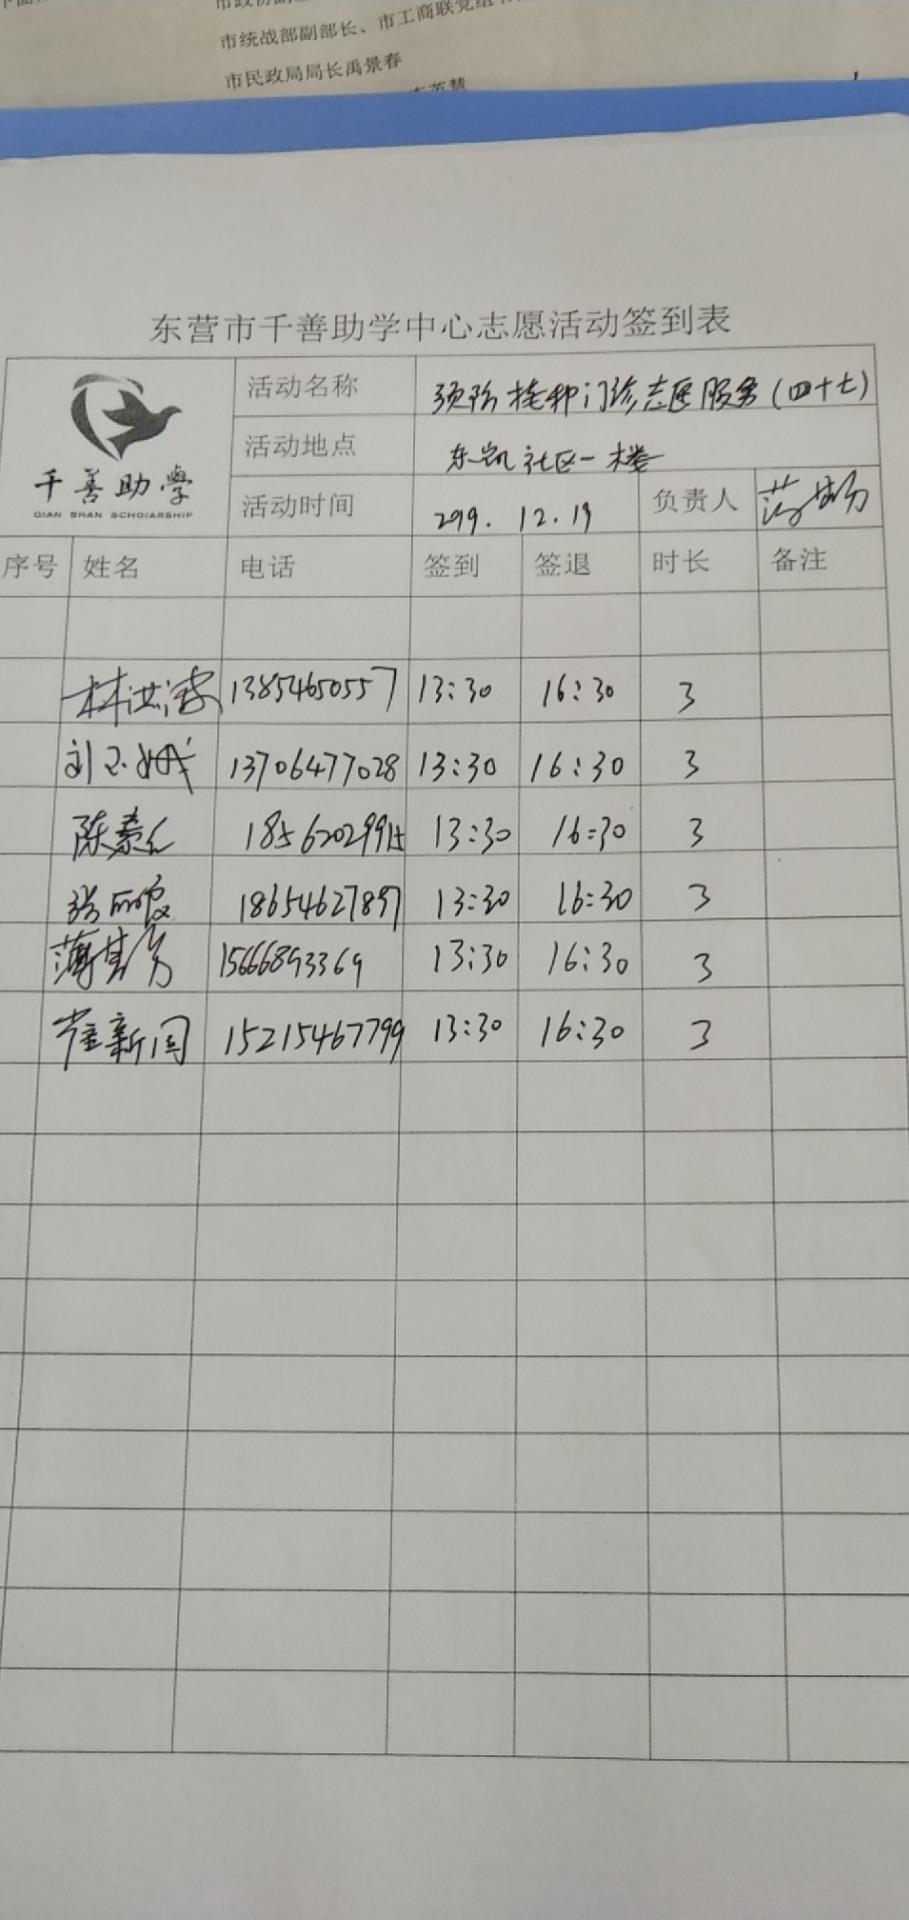 市统战部副部长、市工商联党组
市民政局局长禹景春
东营市千善助学中心志愿活动签到表
千善助學
QIAN SHAN SCHOIARSHIP
活动名称 预防接种门诊志愿服务(四十七)
活动地点 东凯社区一楼
活动时间 2019.12.19 负责人
序号 姓名 电话 签到 签退 时长 备注
13854650557 13:30 16:30 3
刘玉娥 13706477028 13:30 16:30 3
陈 13:30 16:30 3
张 18654627897 13:30 16:30 3
薄其芳 15666893369 13:30 16:30 3
崔新国 15215467799 13:30 16:30 3